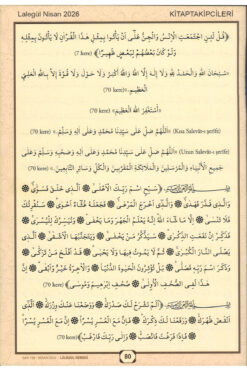 Lalegül Nisan 2026
KİTAPTAKİPCİLERİ
﴿قُلْ لَئِنِ اجْتَمَعَتِ الْإِنْسُ وَالْجِنُّ عَلَى أَنْ يَأْتُوا بِمِثْلِ هَذَا الْقُرْآنِ لَا يَأْتُونَ بِمِثْلِهِ
وَلَوْ كَانَ بَعْضُهُمْ لِبَعْضٍ ظَهِيرًا﴾ (7 kere)
«سُبْحَانَ اللهِ وَالْحَمْدُ لِلهِ وَلَا إِلَهَ إِلَّا اللهُ وَاللهُ أَكْبَرُ وَلَا حَوْلَ وَلَا قُوَّةَ إِلَّا بِاللهِ الْعَلِيِّ
الْعَظِيمِ» (70 kere)
«أَسْتَغْفِرُ اللهَ الْعَظِيمَ» (70 kere)
(Kısa Salevât-ı şerîfe) «اَللَّهُمَّ صَلِّ عَلَى سَيِّدِنَا مُحَمَّدٍ وَعَلَى آلِهِ وَسَلِّمْ» (70 kere)
(Uzun Salevât-ı şerîfe) «اَللَّهُمَّ صَلِّ عَلَى سَيِّدِنَا مُحَمَّدٍ وَعَلَى آلِهِ وَصَحْبِهِ وَسَلِّمْ وَعَلَى
جَمِيعِ الْأَنْبِيَاءِ وَالْمُرْسَلِينَ وَالْمَلَائِكَةِ الْمُقَرَّبِينَ وَالْكُلِّ وَسَائِرِ التَّابِعِينَ» (70 kere)
سَبِّحِ اسْمَ رَبِّكَ الْأَعْلَى الَّذِي خَلَقَ فَسَوَّى
وَالَّذِي قَدَّرَ فَهَدَى وَالَّذِي أَخْرَجَ الْمَرْعَى فَجَعَلَهُ غُثَاءً أَحْوَى سَنُقْرِئُكَ
فَلَا تَنْسَى إِلَّا مَا شَاءَ اللهُ إِنَّهُ يَعْلَمُ الْجَهْرَ وَمَا يَخْفَى وَنُيَسِّرُكَ لِلْيُسْرَى
فَذَكِّرْ إِنْ نَفَعَتِ الذِّكْرَى سَيَذَّكَّرُ مَنْ يَخْشَى وَيَتَجَنَّبُهَا الْأَشْقَى الَّذِي
يَصْلَى النَّارَ الْكُبْرَى ثُمَّ لَا يَمُوتُ فِيهَا وَلَا يَحْيَى قَدْ أَفْلَحَ مَنْ تَزَكَّى
وَذَكَرَ اسْمَ رَبِّهِ فَصَلَّى بَلْ تُؤْثِرُونَ الْحَيَوةَ الدُّنْيَا وَالْآخِرَةُ خَيْرٌ وَأَبْقَى إِنَّ
هَذَا لَفِي الصُّحُفِ الْأُولَى صُحُفِ إِبْرَهِيمَ وَمُوسَى (70 kere)
أَلَمْ نَشْرَحْ لَكَ صَدْرَكَ وَوَضَعْنَا عَنْكَ وِزْرَكَ الَّذِي
أَنْقَضَ ظَهْرَكَ وَرَفَعْنَا لَكَ ذِكْرَكَ فَإِنَّ مَعَ الْعُسْرِ يُسْرًا إِنَّ مَعَ الْعُسْرِ يُسْرًا
فَإِذَا فَرَغْتَ فَانْصَبْ وَإِلَى رَبِّكَ فَارْغَبْ (70 kere)
80